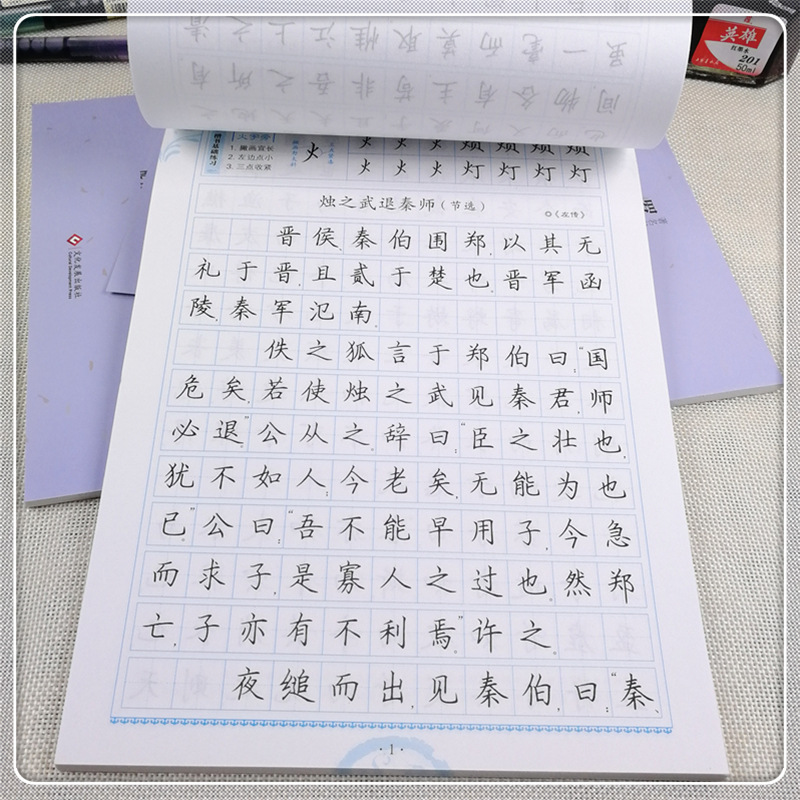 英雄
红墨水
201
50ml
火字旁
楷书基础练习
1. 撇画宜长
2. 左边点小
3. 三点收紧
火 火 火 火 烦 烦 烦 烦
火 火 火 火 灯 灯 灯 灯
烛之武退秦师(节选)
◎《左传》
晋侯、秦伯围郑,以其无
礼于晋,且贰于楚也。晋军函
陵,秦军氾南。
佚之狐言于郑伯曰:“国
危矣,若使烛之武见秦君,师
必退。”公从之。辞曰:“臣之壮也,
犹不如人;今老矣,无能为也
已。”公曰:“吾不能早用子,今急
而求子,是寡人之过也。然郑
亡,子亦有不利焉。”许之。
夜缒而出,见秦伯,曰:“秦、
·1·
文化发展出版社
Cultural Development Press